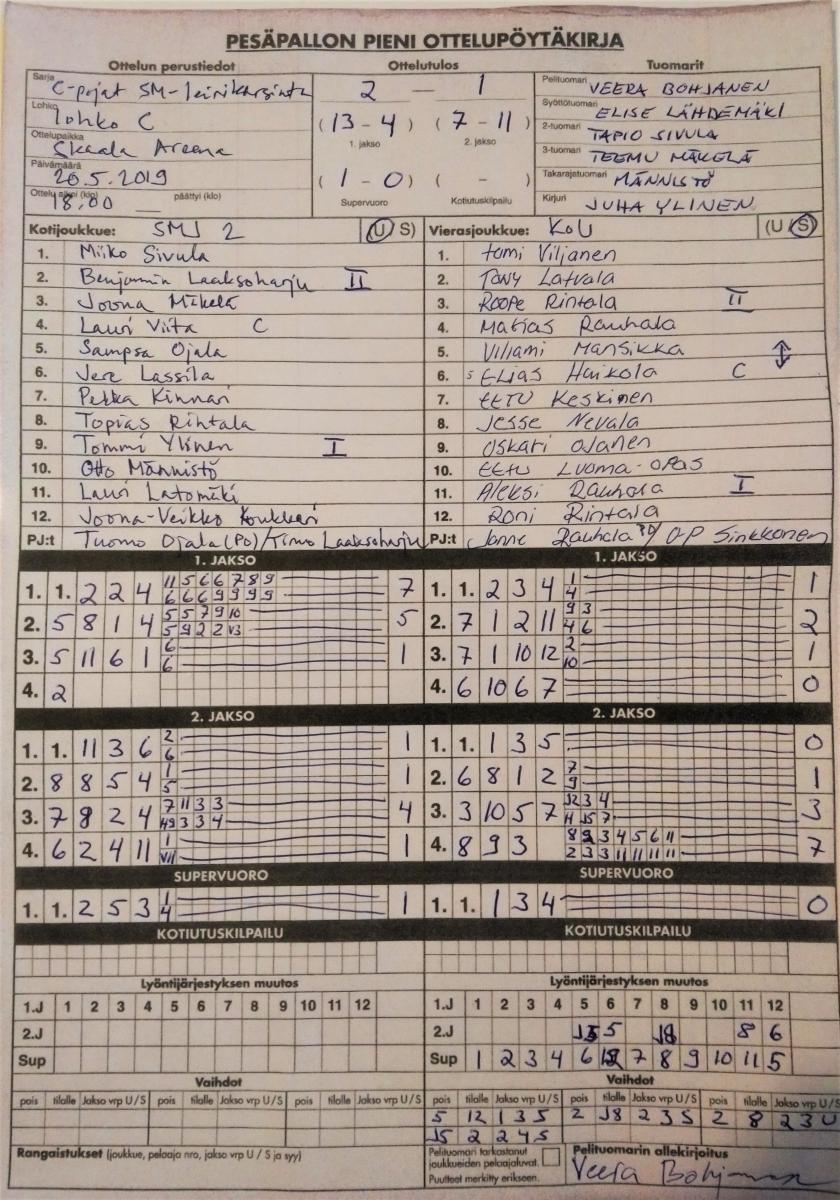 PESÄPALLON PIENI OTTELUPÖYTÄKIRJA
Ottelun perustiedot Ottelutulos Tuomarit
Sarja C-pojat SM-leirikarsinta 2 — 1 Pelituomari VEERA BOHJANEN
Lohko lohko C (13 - 4) (7 - 11) Syöttötuomari ELISE LÄHDEMÄKI
1. jakso 2. jakso
Ottelupaikka Skaala Areena 2-tuomari TAPIO SIVULA
3-tuomari TEEMU MÄKELÄ
Päivämäärä 20.5.2019 (1 - 0) ( - ) Takarajatuomari MÄNNISTÖ
Ottelu alkoi (klo) 18.00 päättyi (klo) Supervuoro Kotiutuskilpailu Kirjuri JUHA YLINEN
Kotijoukkue: SMJ 2 (U S) Vierasjoukkue: KoU (U / S)
1. Miiko Sivula 1. tomi Viljanen
2. Benjamin Laaksoharju II 2. TONY Latvala
3. Joona Mäkelä 3. ROOPE Rintala II
4. Lauri Viita C 4. Matias Rauhala
5. Sampsa Ojala 5. Viljami Mansikka
6. Jere Lassila 6. ELIAS Haikola C
7. Pekka Kinnari 7. EETU Keskinen
8. Topias Rintala 8. Jesse Nevala
9. Tommi Ylinen I 9. Oskari Ojanen
10. Otto Männistö 10. EETU Luoma-opas
11. Lauri Latomäki 11. Aleksi Rauhala I
12. Joona-Veikko Koukkari 12. Roni Rintala
PJ:t Tuomo Ojala (Po) / Timo Laaksoharju PJ:t Janne Rauhala PJ / O-P Sinkkonen
1. JAKSO 1. JAKSO
1. 1. 2 2 4 11 5 6 6 7 8 9 7 1. 1. 2 3 4 1 1
6 6 6 9 9 9 9 4
2. 5 8 1 4 5 5 7 9 10 5 2. 7 1 2 11 9 3 2
5 9 2 2 V3 4 6
3. 5 11 6 1 6 1 3. 7 1 10 12 2 1
6 10
4. 2 4. 6 10 6 7 0
2. JAKSO 2. JAKSO
1. 1. 11 3 6 2 1 1. 1. 1 3 5 0
6
2. 8 8 5 4 1 1 2. 6 8 1 2 7 1
5 9
3. 7 9 2 4 7 11 3 3 4 3. 3 10 5 7 J2 3 4 3
3 3 4 J5 7
4. 6 2 4 11 1 1 4. 8 9 3 8 3 4 5 6 11 7
VII 2 3 3 11 11 11 11
SUPERVUORO SUPERVUORO
1. 1. 2 5 3 1 1 1. 1. 1 3 4 0
4
KOTIUTUSKILPAILU KOTIUTUSKILPAILU
Lyöntijärjestyksen muutos Lyöntijärjestyksen muutos
1.J 1 2 3 4 5 6 7 8 9 10 11 12 1.J 1 2 3 4 5 6 7 8 9 10 11 12
2.J 2.J 5 J8 8 6
Sup Sup 1 2 3 4 6 7 8 9 10 11 5
Vaihdot Vaihdot
pois tilalle Jakso vrp U / S pois tilalle Jakso vrp U / S pois tilalle Jakso vrp U / S pois tilalle Jakso vrp U / S pois tilalle Jakso vrp U / S pois tilalle Jakso vrp U / S
5 12 1 3 S 2 J8 2 3 S 2 8 2 3 U
J5 2 2 4 S
Rangaistukset (joukkue, pelaaja nro, jakso vrp U / S ja syy) Pelituomari tarkastanut joukkueiden pelaajaluvat. Pelituomarin allekirjoitus
Puutteet merkitty erikseen. Veera Bohjanen